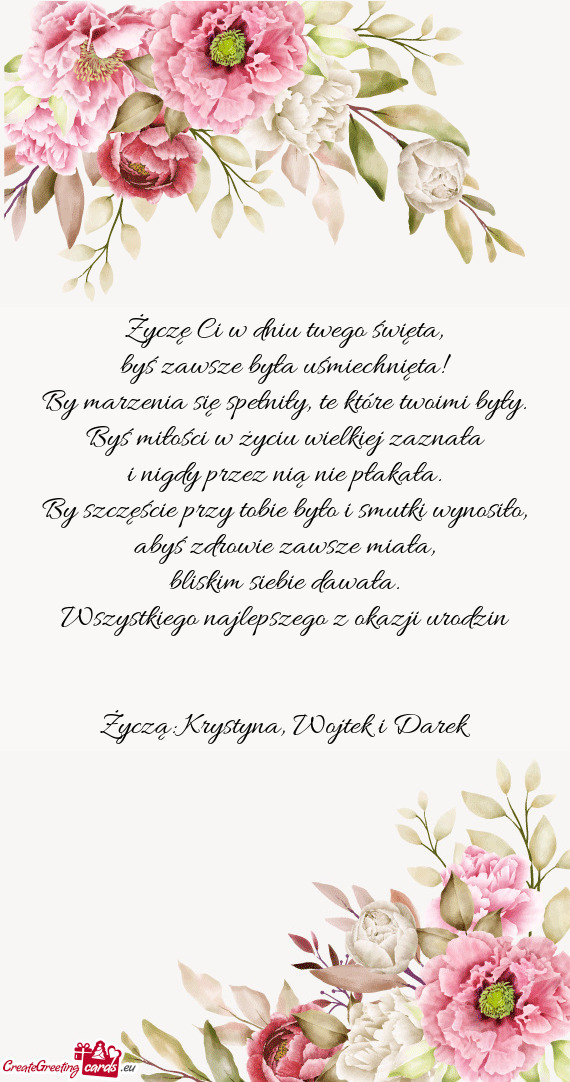 Życzę Ci w dniu twego święta,
byś zawsze była uśmiechnięta!
By marzenia się spełniły, te które twoimi były.
Byś miłości w życiu wielkiej zaznała
i nigdy przez nią nie płakała.
By szczęście przy tobie było i smutki wynosiło,
abyś zdrowie zawsze miała,
bliskim siebie dawała.
Wszystkiego najlepszego z okazji urodzin
Życzą:Krystyna, Wojtek i Darek
CreateGreeting cards .eu